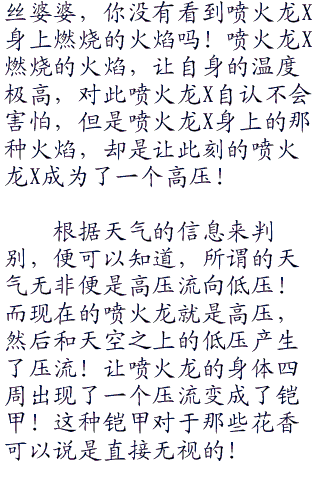 丝婆婆，你没有看到喷火龙X
身上燃烧的火焰吗！喷火龙X
燃烧的火焰，让自身的温度
极高，对此喷火龙X自认不会
害怕，但是喷火龙X身上的那
种火焰，却是让此刻的喷火
龙X成为了一个高压！
根据天气的信息来判
别，便可以知道，所谓的天
气无非便是高压流向低压！
而现在的喷火龙就是高压，
然后和天空之上的低压产生
了压流！让喷火龙的身体四
周出现了一个压流变成了铠
甲！这种铠甲对于那些花香
可以说是直接无视的！